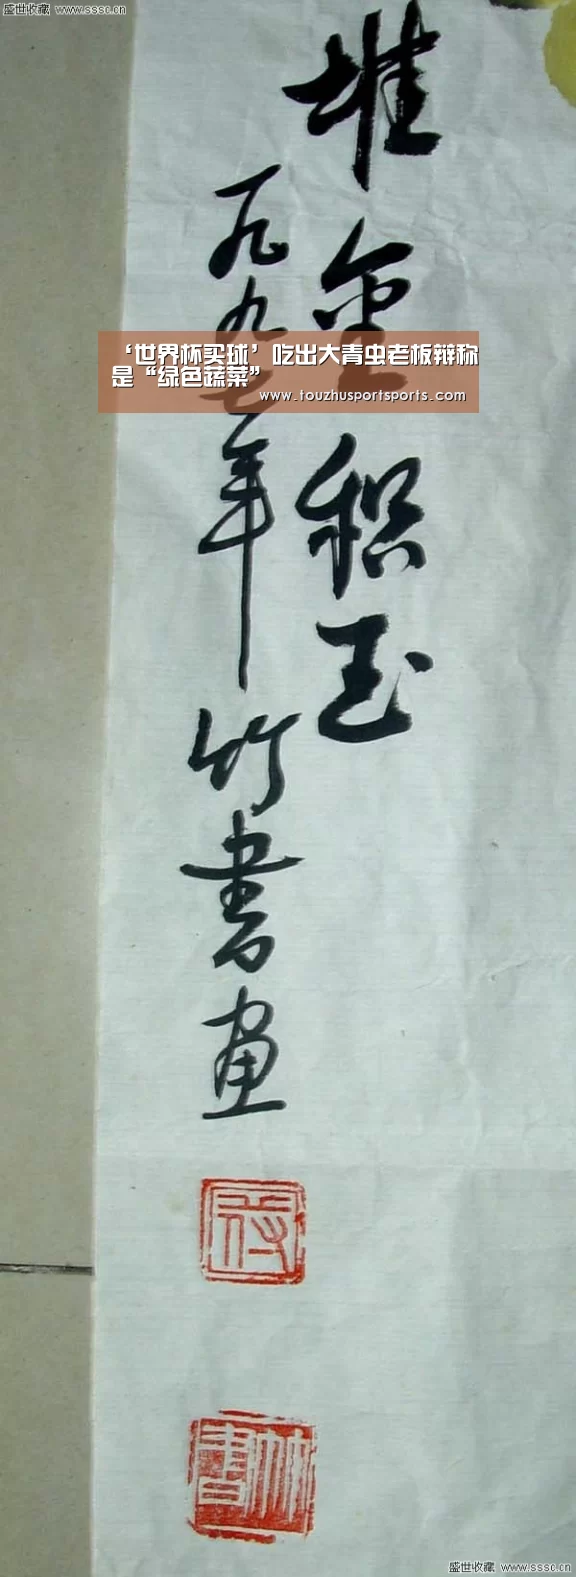 盛世收藏 www.sssc.cn
堆金积玉
一九九七年竹書画
‘世界杯买球’吃出大青虫老板辩称
是“绿色蔬菜”
www.touzhusportsports.com
盛世收藏 www.sssc.cn